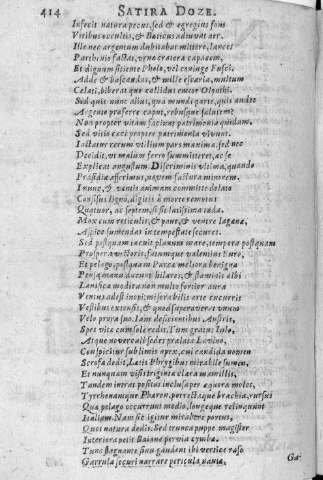 414 SATIRA DOZE.
Infecit natura pecus, sed & egregius fons
Viribus occultis, & Baticus adiuvat aer.
Ille nec argentum dubitabat mittere, lances
Parthenio factas, urnæ cratera capacem,
Et dignum sitiente Pholo, vel coniuge Fusci.
Adde & bascaudas, & mille escaria, multum
Celati, biberat quo callidus emtor Olynthi.
Sed quis nunc alius, qua mundi parte, quis audet
Argento præferre caput, rebusque salutem?
Non propter vitam faciunt patrimonia quidam,
Sed vitio cæci propter patrimonia vivunt.
Iactatur rerum utilium pars maxima, sed nec
Decidit, ut malum ferro summitteret, ac se
Explicat angustum. Discriminis ultima, quando
Præsidia afferimus, navem factura minorem.
I nunc, & ventis animam committe dolato
Confisus ligno, digitis à morte remotus
Quatuor, ac septem, si sit latissima tæda.
Mox cum reticulis, & pane, & ventre lagenæ,
Aspice sumendas in tempestate secures.
Sed postquam iacuit planum mare, tempora postquam
Prospera vectoris, fatumque valentius Euro,
Et pelago, postquam Parcæ meliora benigna
Pensa manu ducunt hilares, & staminis albi
Lanificæ modica non multo fortior aura
Ventus adest inopi miserabilis arte cucurrit
Vestibus extensis, & quod superaverat unum
Velo prora suo. Iam deficientibus Austris,
Spes vitæ cum sole redit. Tum gratus Iulo,
Atque novercali sedes prælata Lavino,
Conspicitur sublimis apex, cui candida nomen
Scrofa dedit, Lætis Phrygibus mirabile sumen,
Et nunquam visis triginta clara mamillis.
Tandem intrat positas inclusa per æquora moles,
Tyrrhenamque Pharon, porrectaque brachia, rursus
Quæ pelago occurrunt medio, longeque relinquunt
Italiam. Non sic igitur mirabere portus,
Quos natura dedit. Sed trunca puppe magister
Interiora petit Baianæ pervia cymbæ.
Tunc stagnante sinu gaudent ibi vertice raso
Garrula securi narrare pericula nautæ.
Ga-